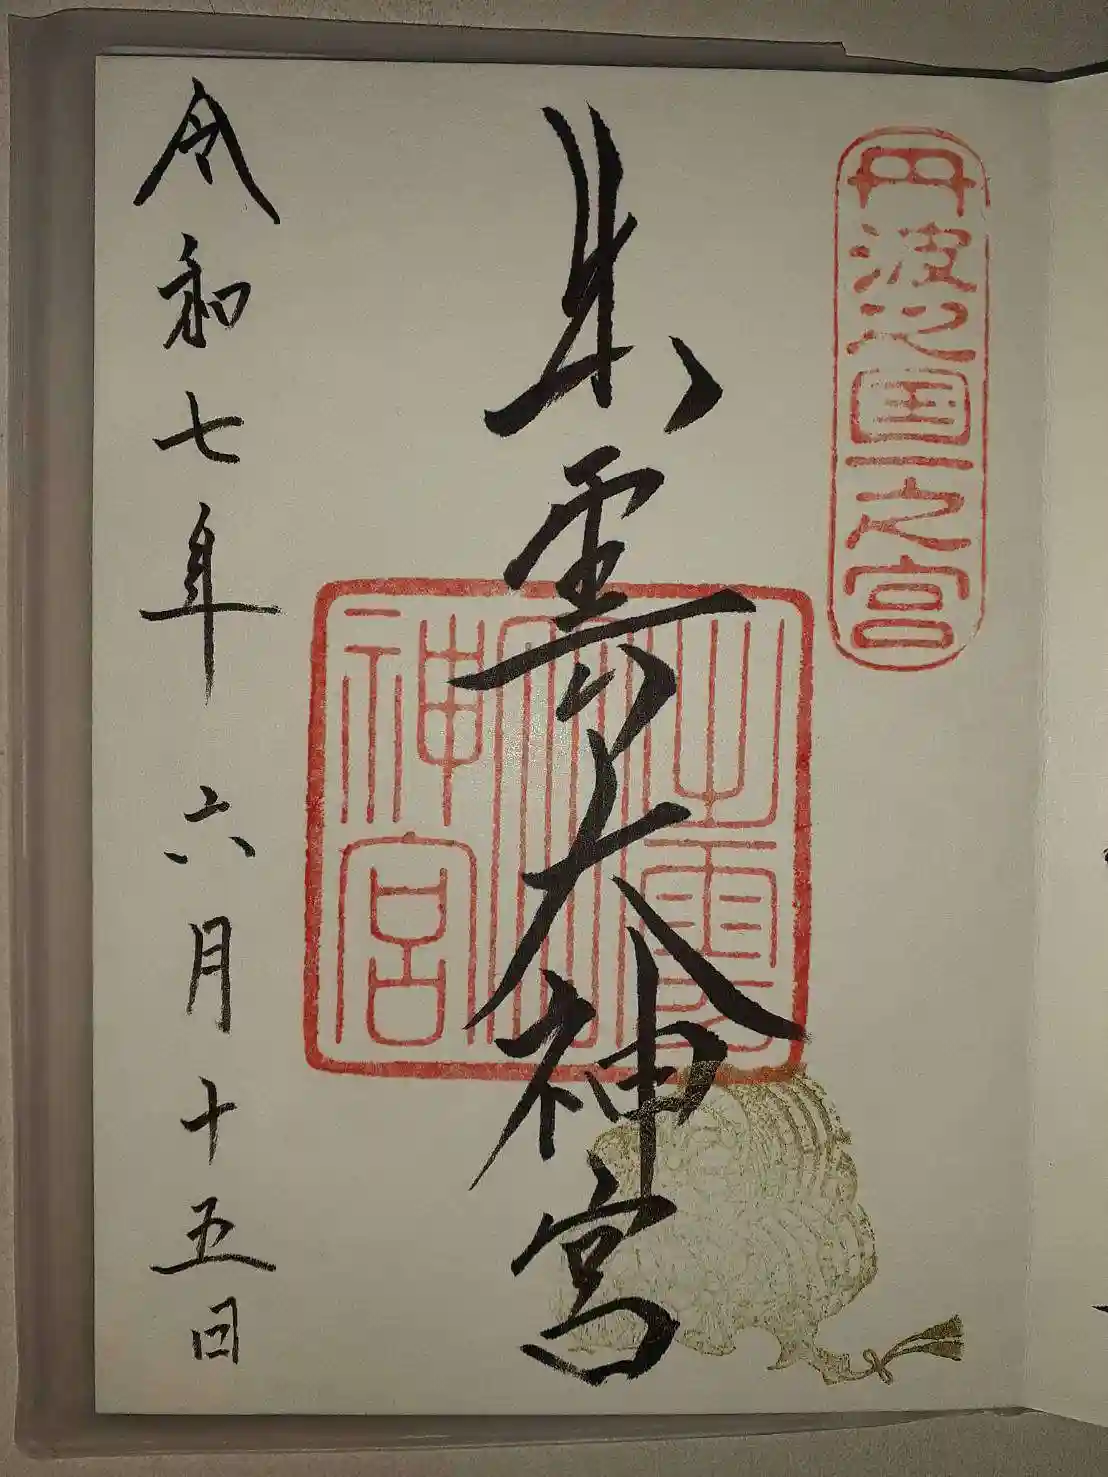 丹波之国一之宮
出雲大神宮
出雲大神宮
令和七年六月十五日